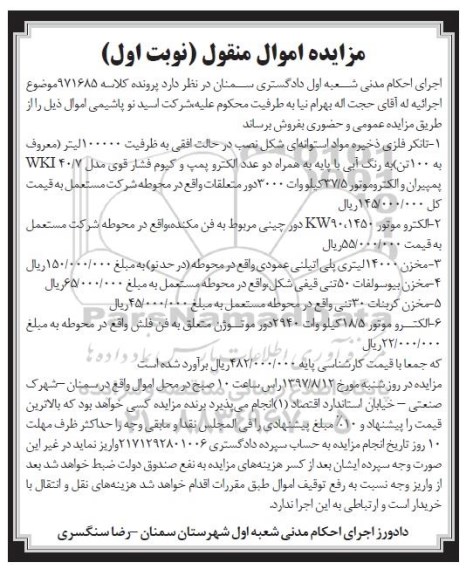 مزایده اموال منقول (نوبت اول)
اجرای احکام مدنی شعبه اول دادگستری سمنان در نظر دارد پرونده کلاسه ۹۷۱۶۸۵موضوع
اجرائیه له آقای حجت اله بهرام نیا به طرفیت محکوم علیه،شرکت اسید نو پاشیمی اموال ذیل را از
طریق مزایده عمومی و حضوری بفروش برساند
۱-تانکر فلزی ذخیره مواد استوانه‌ای شکل نصب در حالت افقی به ظرفیت ۱۰۰۰۰۰لیتر (معروف
به ۱۰۰ تن)به رنگ آبی با پایه به همراه دو عدد الکترو پمپ و کیوم فشار قوی مدل WKI ۴۰/۷
پمپیران و الکتروموتور ۳۷/۵کیلو وات ۳۰۰۰دور متعلقات واقع در محوطه شرکت مستعمل به قیمت
کل ۱۴۵/۰۰۰/۰۰۰ریال
۲-الکترو موتور KW۹۰،۱۴۵۰ دور چینی مربوط به فن مکنده،واقع در محوطه شرکت مستعمل
به قیمت ۵۵/۰۰۰/۰۰۰ریال
۳-مخزن ۱۴۰۰۰لیتری پلی اتیلنی عمودی واقع در محوطه (در حد نو) به مبلغ ۱۵۰/۰۰۰/۰۰۰ریال
۴-مخزن بیوسولفات ۵۰تنی قیفی شکل واقع در محوطه مستعمل به مبلغ ۶۵/۰۰۰/۰۰۰ریال
۵-مخزن کربنات ۳۰تنی واقع در محوطه مستعمل به مبلغ ۴۵/۰۰۰/۰۰۰ریال
۶-الکترو موتور ۱۸/۵کیلو وات ۲۹۴۰دور موتوژن متعلق به فن فلش واقع در محوطه به مبلغ
۲۲/۰۰۰/۰۰۰ریال
که جمعا با قیمت کارشناسی پایه ۴۸۲/۰۰۰/۰۰۰ریال برآورد شده است
مزایده در روز شنبه مورخ ۱۳۹۷/۸/۱۲راس ساعت ۱۰ صبح در محل اموال واقع در سمنان –شهرک
صنعتی – خیابان استاندارد اقتصاد (۱)انجام می‌پذیرد برنده مزایده کسی خواهد بود که بالاترین
قیمت را پیشنهاد و ۱۰٪ مبلغ پیشنهادی را فی المجلس نقدا و مابقی وجه را حداکثر ظرف مهلت
۱۰ روز تاریخ انجام مزایده به حساب سپرده دادگستری ۲۱۷۱۲۹۲۸۰۱۰۰۶واریز نماید در غیر این
صورت وجه سپرده ایشان بعد از کسر هزینه‌های مزایده به نفع صندوق دولت ضبط خواهد شد بعد
از واریز وجه نسبت به رفع توقیف اموال طبق مقررات اقدام خواهد شد هزینه‌های نقل و انتقال با
خریدار است و ارتباطی به این اجرا ندارد.
دادورز اجرای احکام مدنی شعبه اول شهرستان سمنان –رضا سنگسری